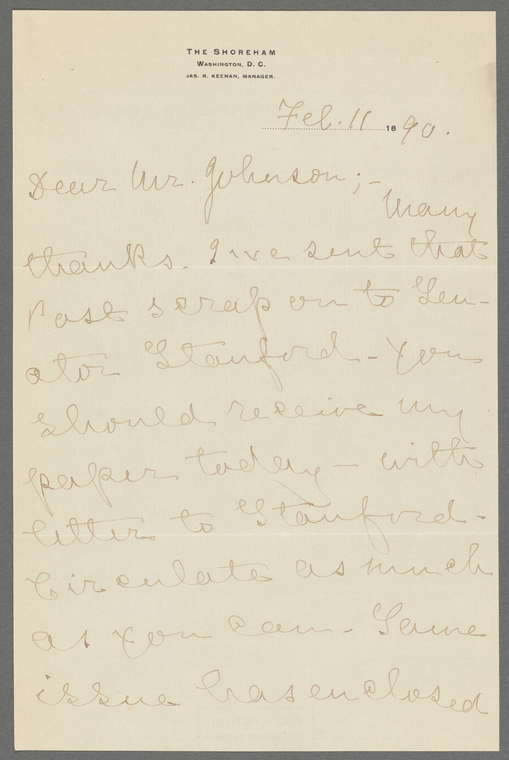 THE SHOREHAM
WASHINGTON, D. C.
JAS. H. KEENAN, MANAGER.
Feb. 11 1890.
Dear Mr. Johnson; -
Many
thanks. I've sent that
Post scrap on to Sen-
ator Stanford - You
should receive my
paper today - with
letter to Stanford -
Circulate as much
as you can - Same
issue has enclosed